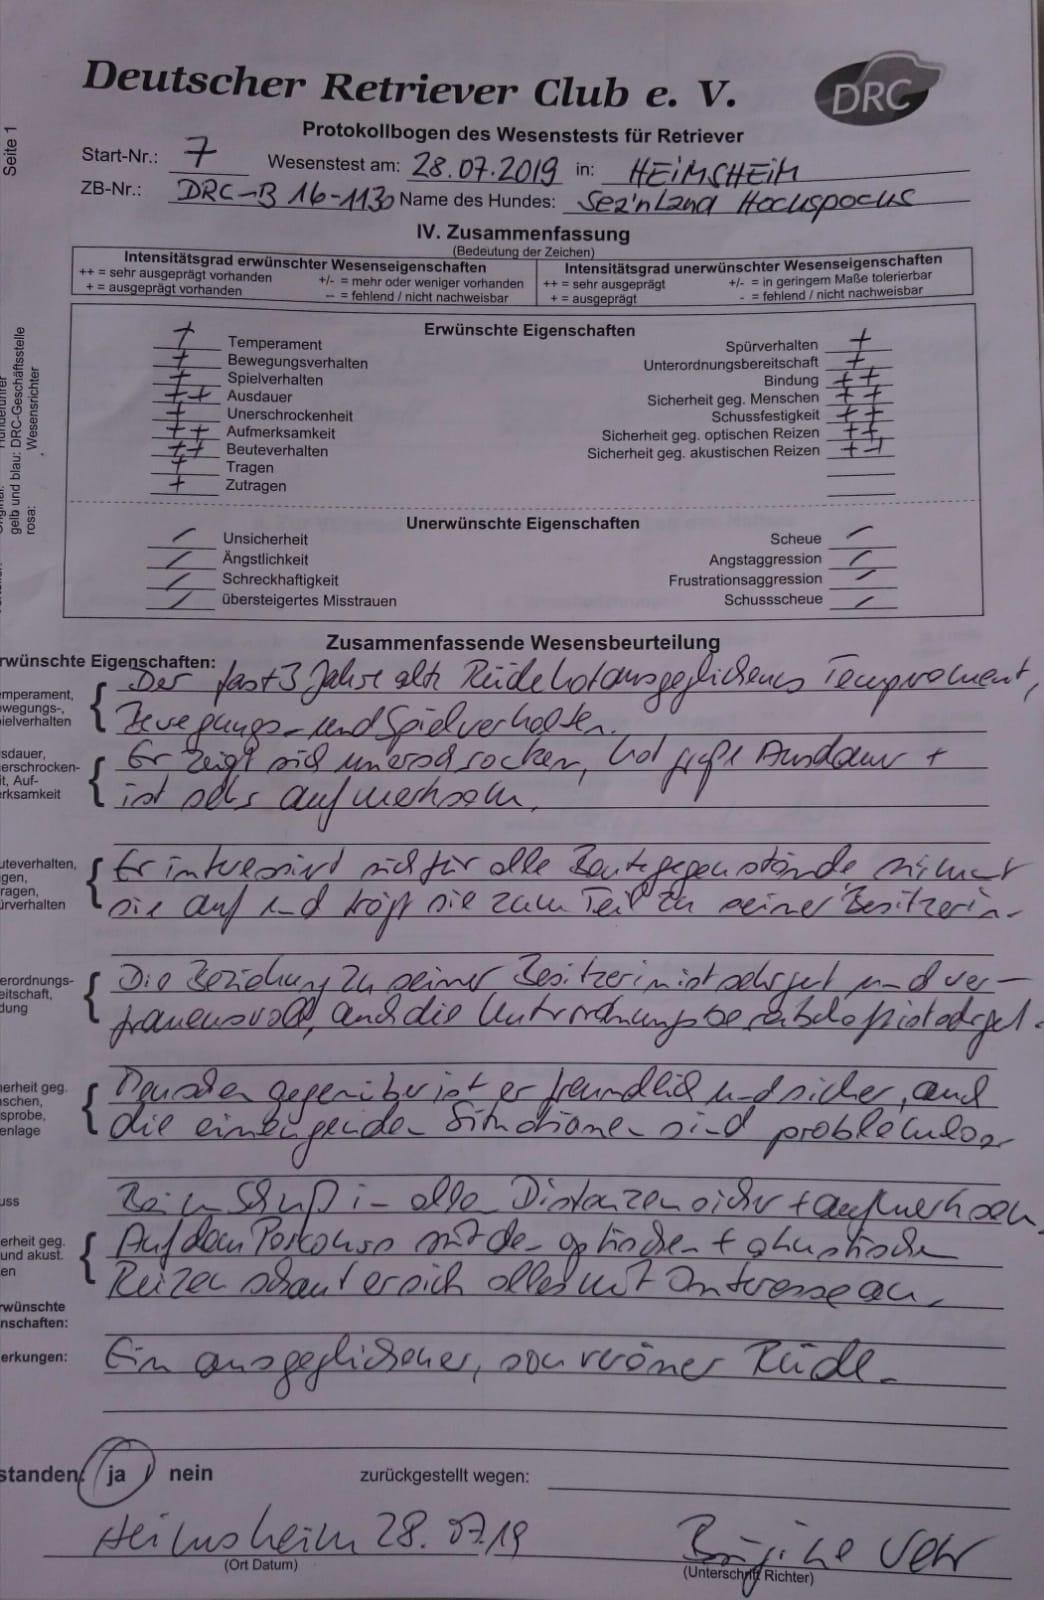 Deutscher Retriever Club e. V.
DRC
Protokollbogen des Wesenstests für Retriever
Seite 1
Start-Nr.: 7 Wesenstest am: 28.07.2019 in: HEIMSHEIM
ZB-Nr.: DRC-B 16-1130 Name des Hundes: Sez'nLand Hocuspocus
IV. Zusammenfassung
(Bedeutung der Zeichen)
Intensitätsgrad erwünschter Wesenseigenschaften
++ = sehr ausgeprägt vorhanden +/- = mehr oder weniger vorhanden
+ = ausgeprägt vorhanden -- = fehlend / nicht nachweisbar
Intensitätsgrad unerwünschter Wesenseigenschaften
++ = sehr ausgeprägt +/- = in geringem Maße tolerierbar
+ = ausgeprägt - = fehlend / nicht nachweisbar
gelb und blau: DRC-Geschäftsstelle
rosa: Wesensrichter
Erwünschte Eigenschaften
+ Temperament
+ Bewegungsverhalten
+ Spielverhalten
++ Ausdauer
+ Unerschrockenheit
++ Aufmerksamkeit
++ Beuteverhalten
+ Tragen
+ Zutragen
Spürverhalten +
Unterordnungsbereitschaft +
Bindung ++
Sicherheit geg. Menschen ++
Schussfestigkeit ++
Sicherheit geg. optischen Reizen ++
Sicherheit geg. akustischen Reizen ++
Unerwünschte Eigenschaften
/ Unsicherheit
/ Ängstlichkeit
/ Schreckhaftigkeit
/ übersteigertes Misstrauen
Scheue /
Angstaggression /
Frustrationsaggression /
Schussscheue /
Zusammenfassende Wesensbeurteilung
rwünschte Eigenschaften:
emperament,
wegungs-,
ielverhalten
Der fast 3 Jahre alte Rüde hat ausgeglichenes Temprament,
Bewegungs- und Spielverhalten.
sdauer,
erschrocken-
it, Auf-
erksamkeit
Er zeigt sich unerschrocken, hat große Ausdauer +
ist sehr aufmerksam.
uteverhalten,
gen,
ragen,
ürverhalten
Er interessiert sich für alle Beutegegenstände nimmt
sie auf und trägt sie zum Teil zu seiner Besitzerin.
erordnungs-
eitschaft,
dung
Die Beziehung zu seiner Besitzerin ist sehr gut und ver-
trauensvoll, auch die ist sehr gut.
herheit geg.
schen,
sprobe,
enlage
Menschen gegenüber ist er freundlich und sicher, auch
die einengenden Situationen sind problemlos
uss
Beim Schuß in allen Distanzen sicher + aufmerksam.
erheit geg.
und akust.
en
Auf dem Parcours mit den optischen + akustischen
Reizen schaut er sich alles mit Interesse an.
rwünschte
nschaften:
erkungen:
Ein ausgeglichener, souveräner Rüde.
standen: ja nein zurückgestellt wegen:
Heimsheim 28.07.19
(Ort Datum)
(Unterschrift Richter)